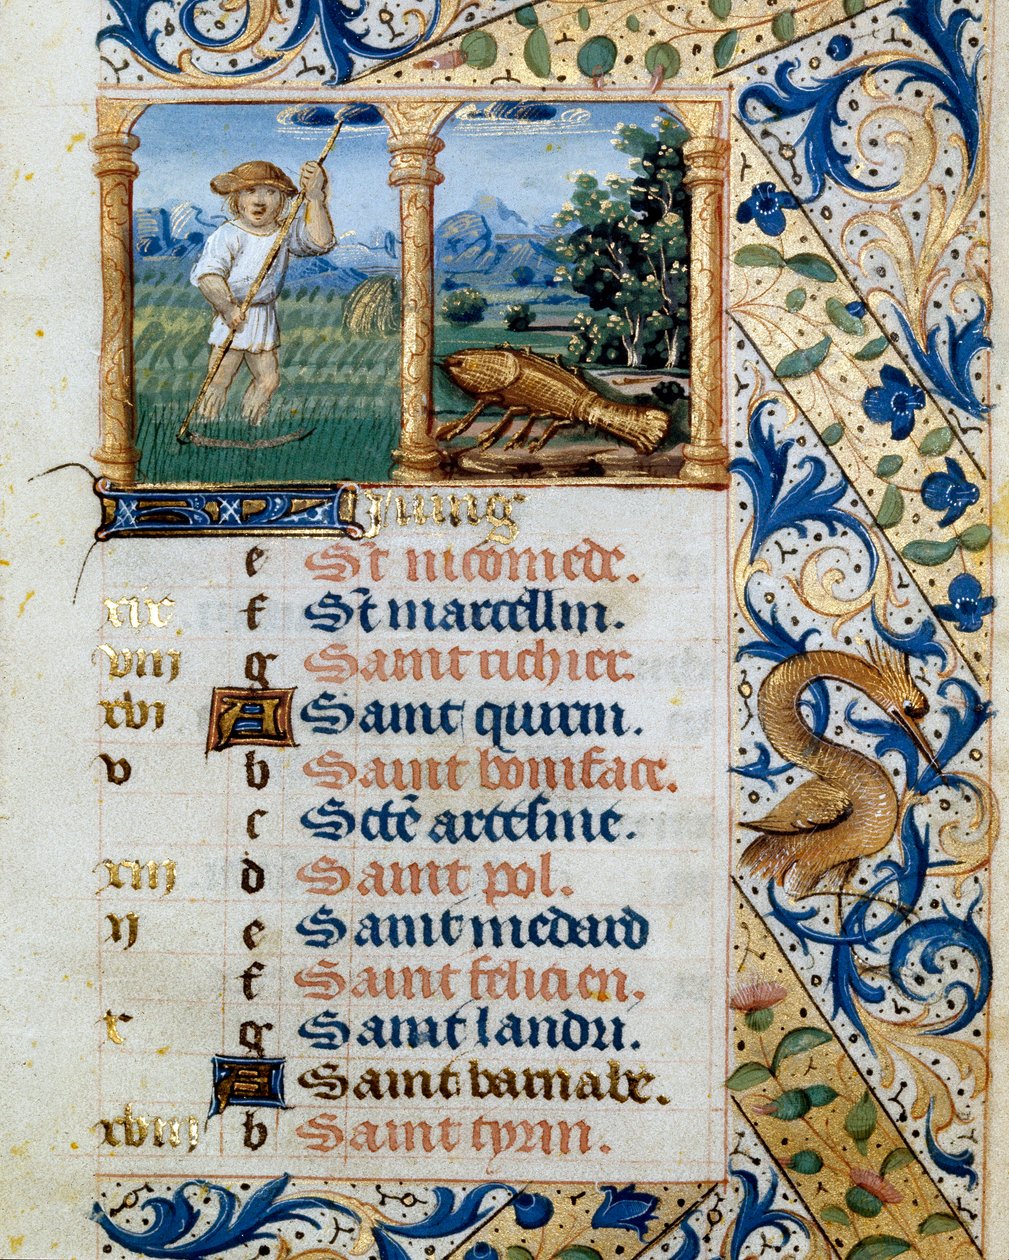 Juing
e St nicomede.
xix f St marcellin.
viij g Saint richier.
xvj A Saint quirin.
v b Saint boniface.
c Sctē
xiij d Saint pol.
ij e Saint medard
f Saint felicien.
x g Saint landri.
A Saint barnabe.
xviij b Saint tyrin.